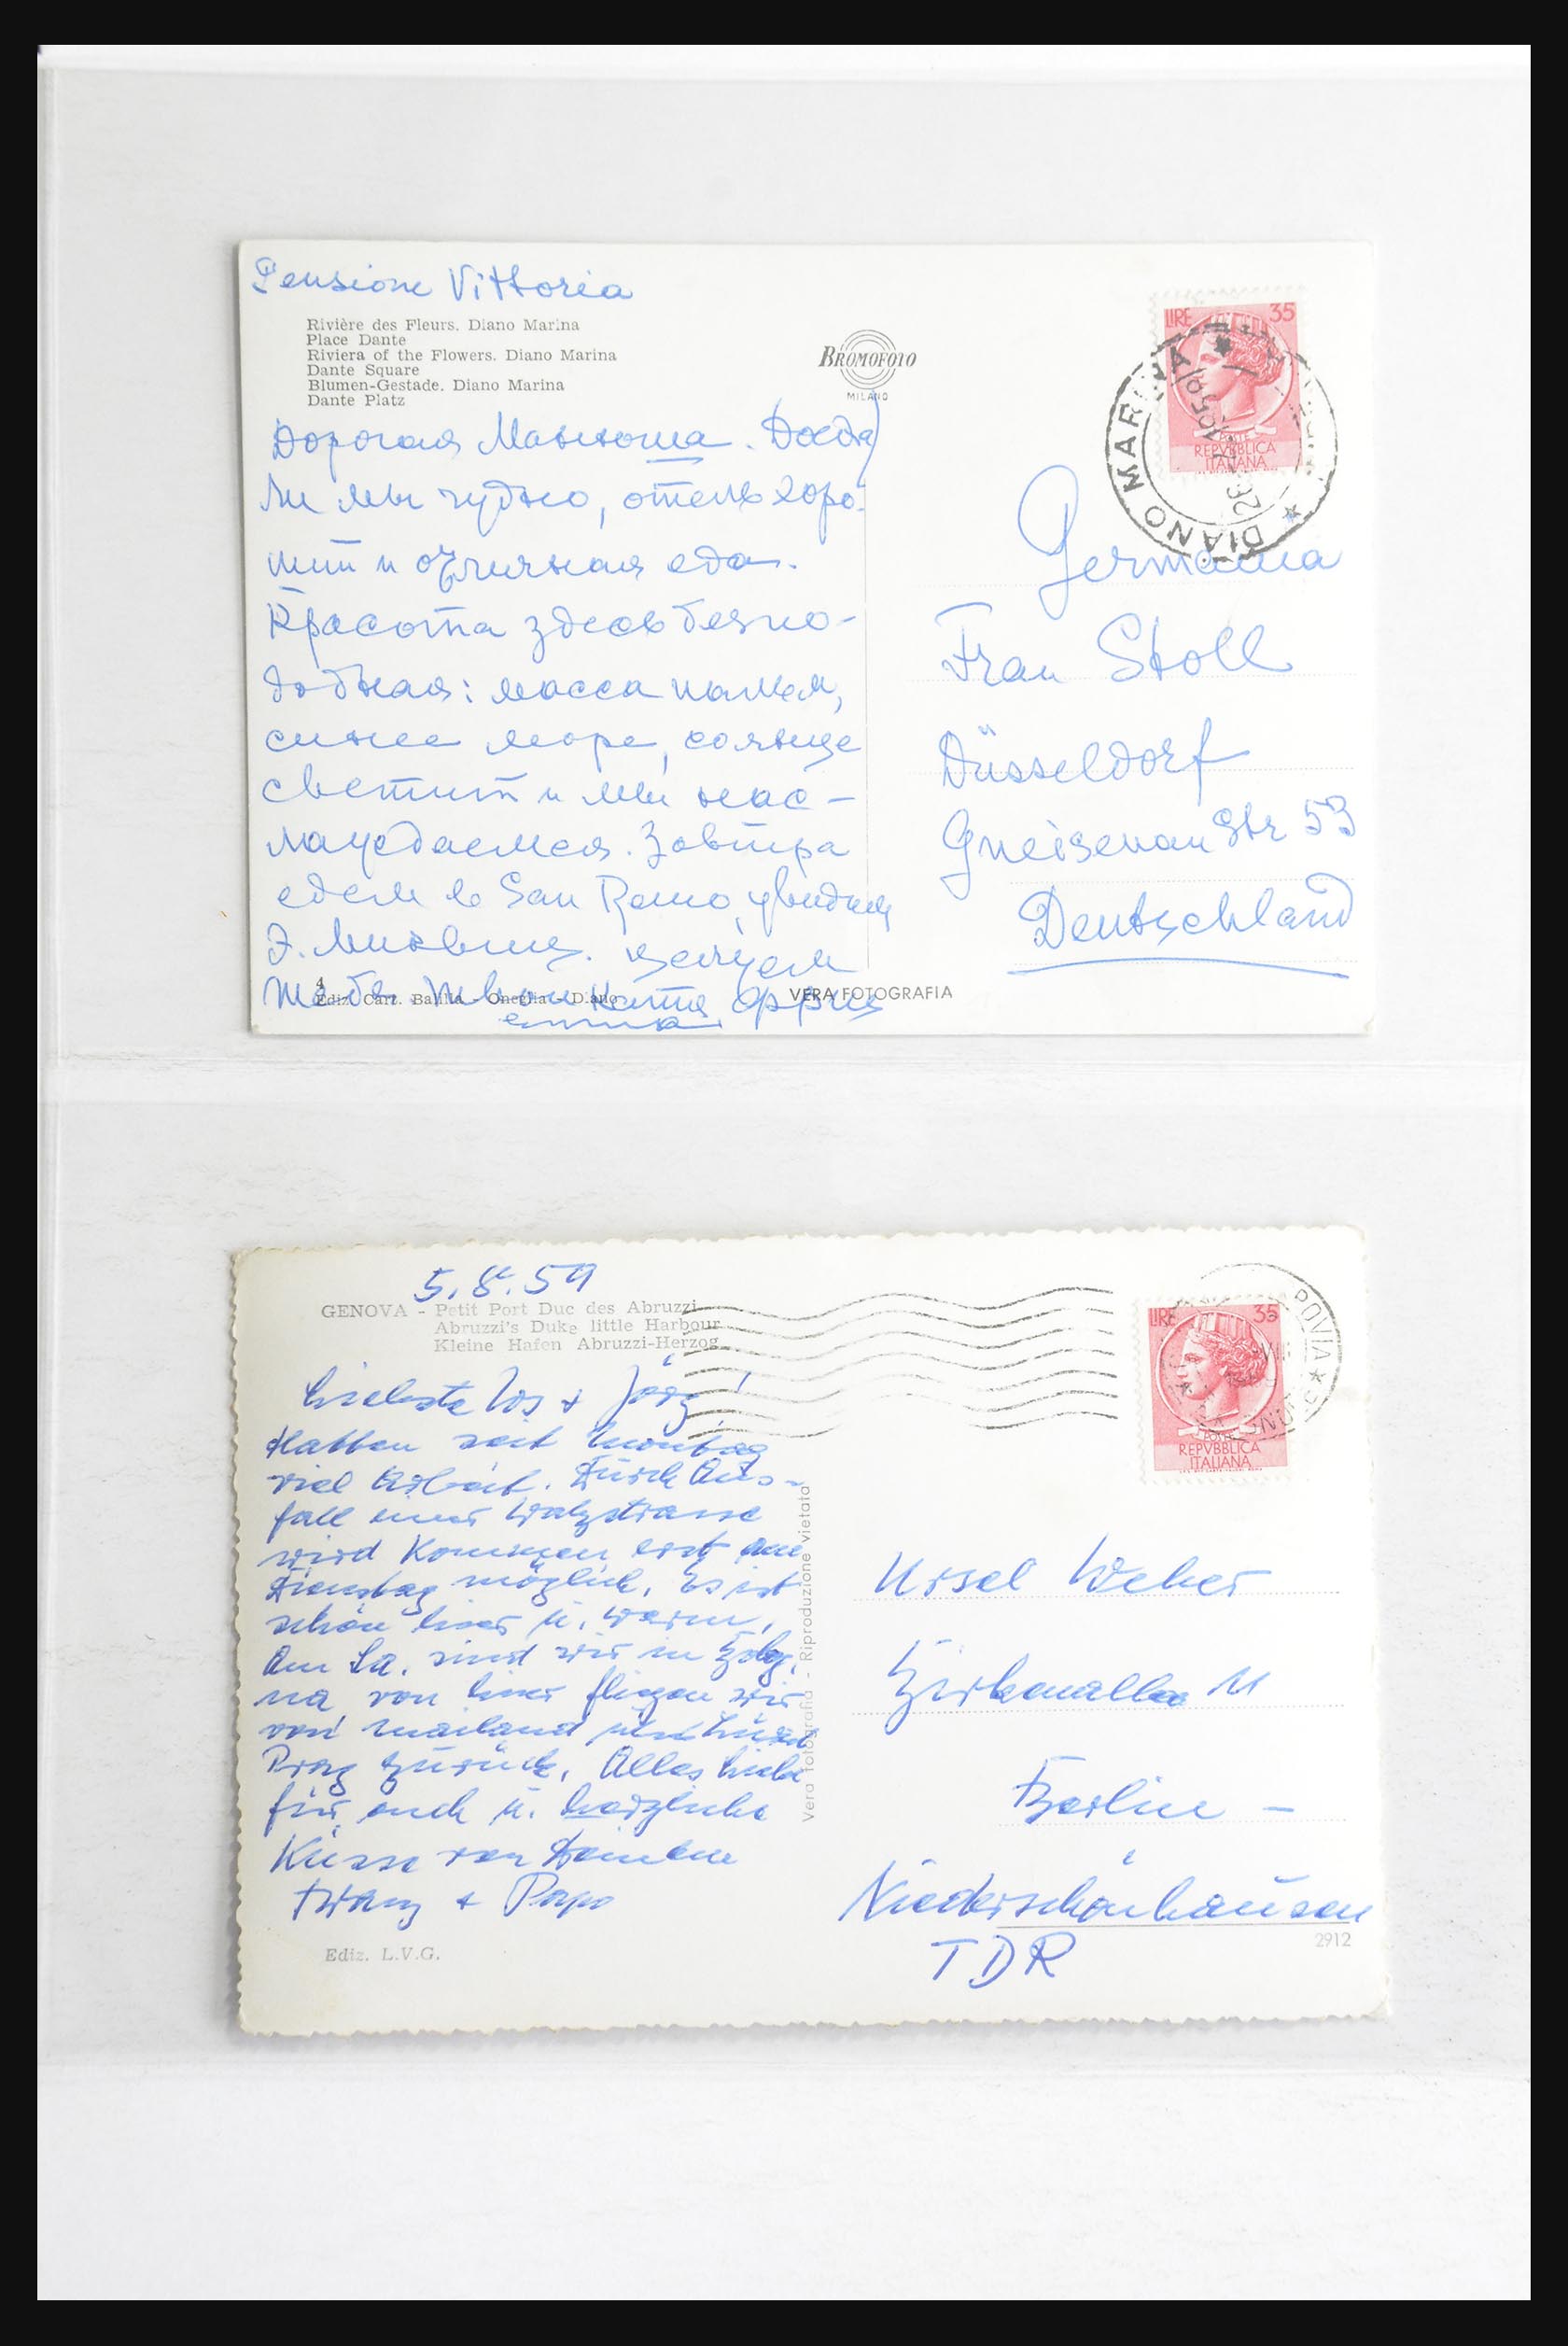 Pensione Vittoria
Rivière des Fleurs. Diano Marina
Place Dante
Riviera of the Flowers. Diano Marina
Dante Square
Blumen-Gestade. Diano Marina
Dante Platz
BROMOFOTO
MILANO
LIRE 35
POSTE
REPVBBLICA
ITALIANA
DIANO MARINA
Дорогая Манюша. Доеха
ли мы чудно, отель хоро-
ший и отличная еда.
Красота здесь безпо-
добная: масса пальм,
синее море, солнце
светит и мы нас-
лаждаемся. Завтра
едем в San Remo, увидим
Э. целуем
тебя. Твои Катя
Germania
Frau Stoll
Düsseldorf
Gneisenau Str 53
Deutschland
4
Ediz. Cart. Balilla - Oneglia - Diano
VERA FOTOGRAFIA
5.8.59
GENOVA - Petit Port Duc des Abruzzi
Abruzzi's Duke little Harbour
Kleine Hafen Abruzzi-Herzog
LIRE 35
POSTE
REPVBBLICA
ITALIANA
Liebste & Jörg!
Hatten seit Montag
viel Arbeit. Durch Aus-
fall einer Walzstrasse
wird Kommen erst am
Dienstag möglich. Es ist
schön hier u. warm.
Am Sa. sind wir in
von hier fliegen wir
von Mailand über Zürich
Prag zurück. Alles Liebe
für euch u. herzliche
Küsse von Deinem
Franz + Papa
Vera fotografia - Riproduzione vietata
Ursel Weber
11
Berlin -
Niederschönhausen
DDR
Ediz. L.V.G.
2912